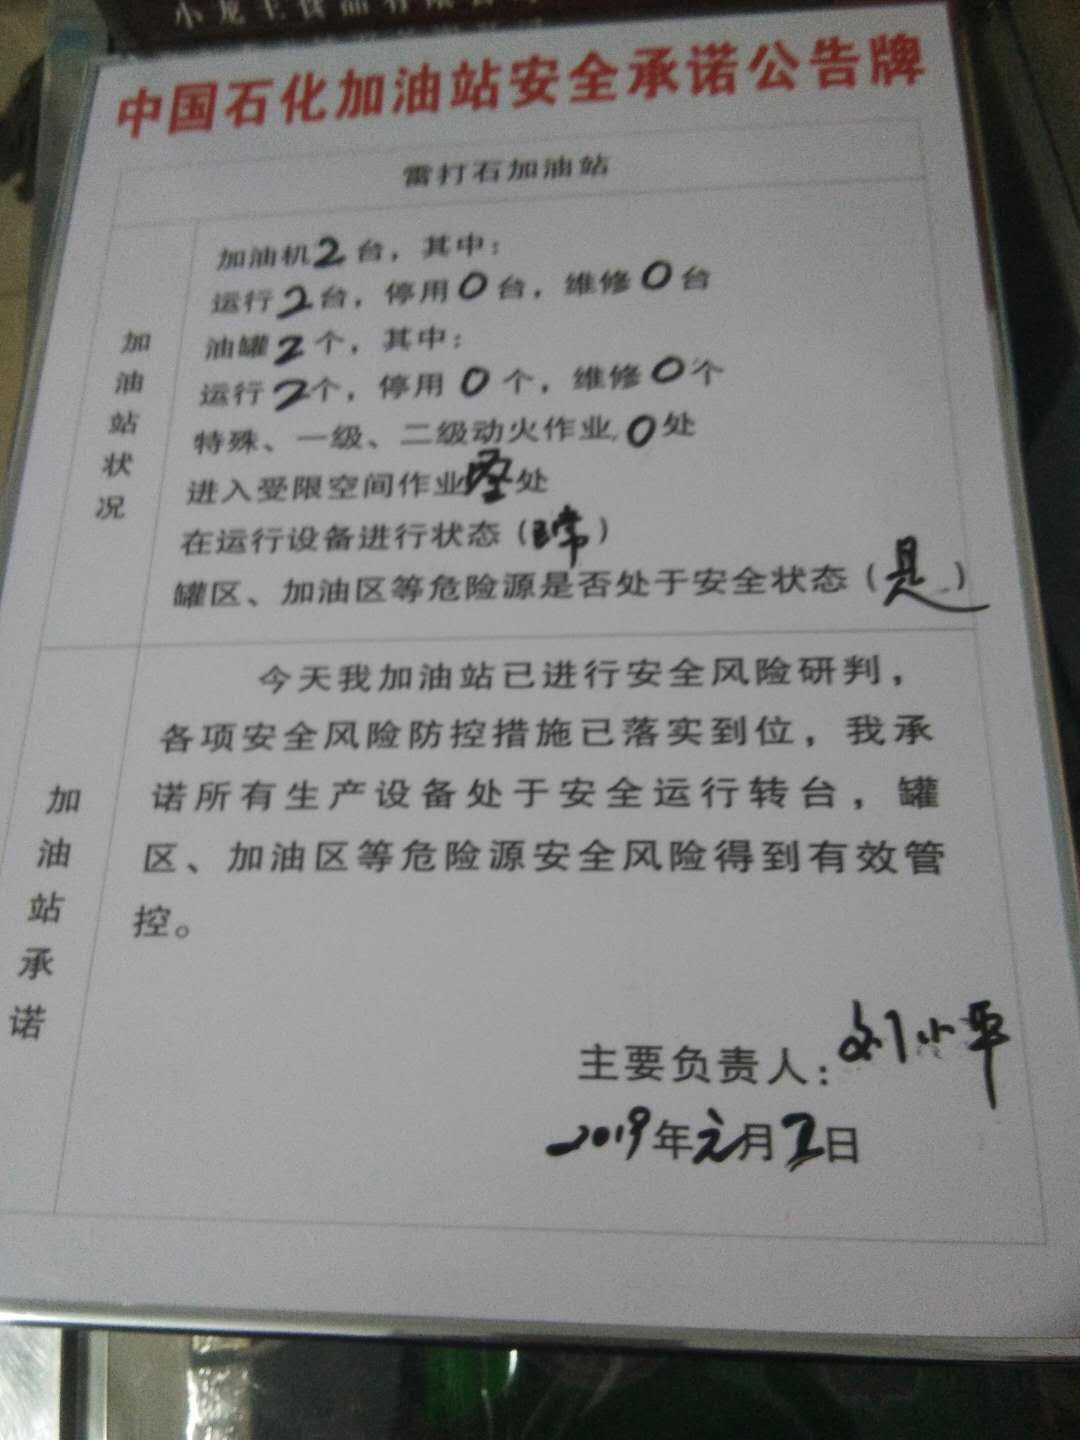 中国石化加油站安全承诺公告牌
雷打石加油站
加油站状况
加油机2台，其中：
运行2台，停用0台，维修0台
油罐2个，其中：
运行2个，停用0个，维修0个
特殊、一级、二级动火作业0处
进入受限空间作业 处
在运行设备进行状态（常）
罐区、加油区等危险源是否处于安全状态（是）
加油站承诺
今天我加油站已进行安全风险研判，
各项安全风险防控措施已落实到位，我承
诺所有生产设备处于安全运行转台，罐
区、加油区等危险源安全风险得到有效管
控。
主要负责人：刘小平
2019年元月 日